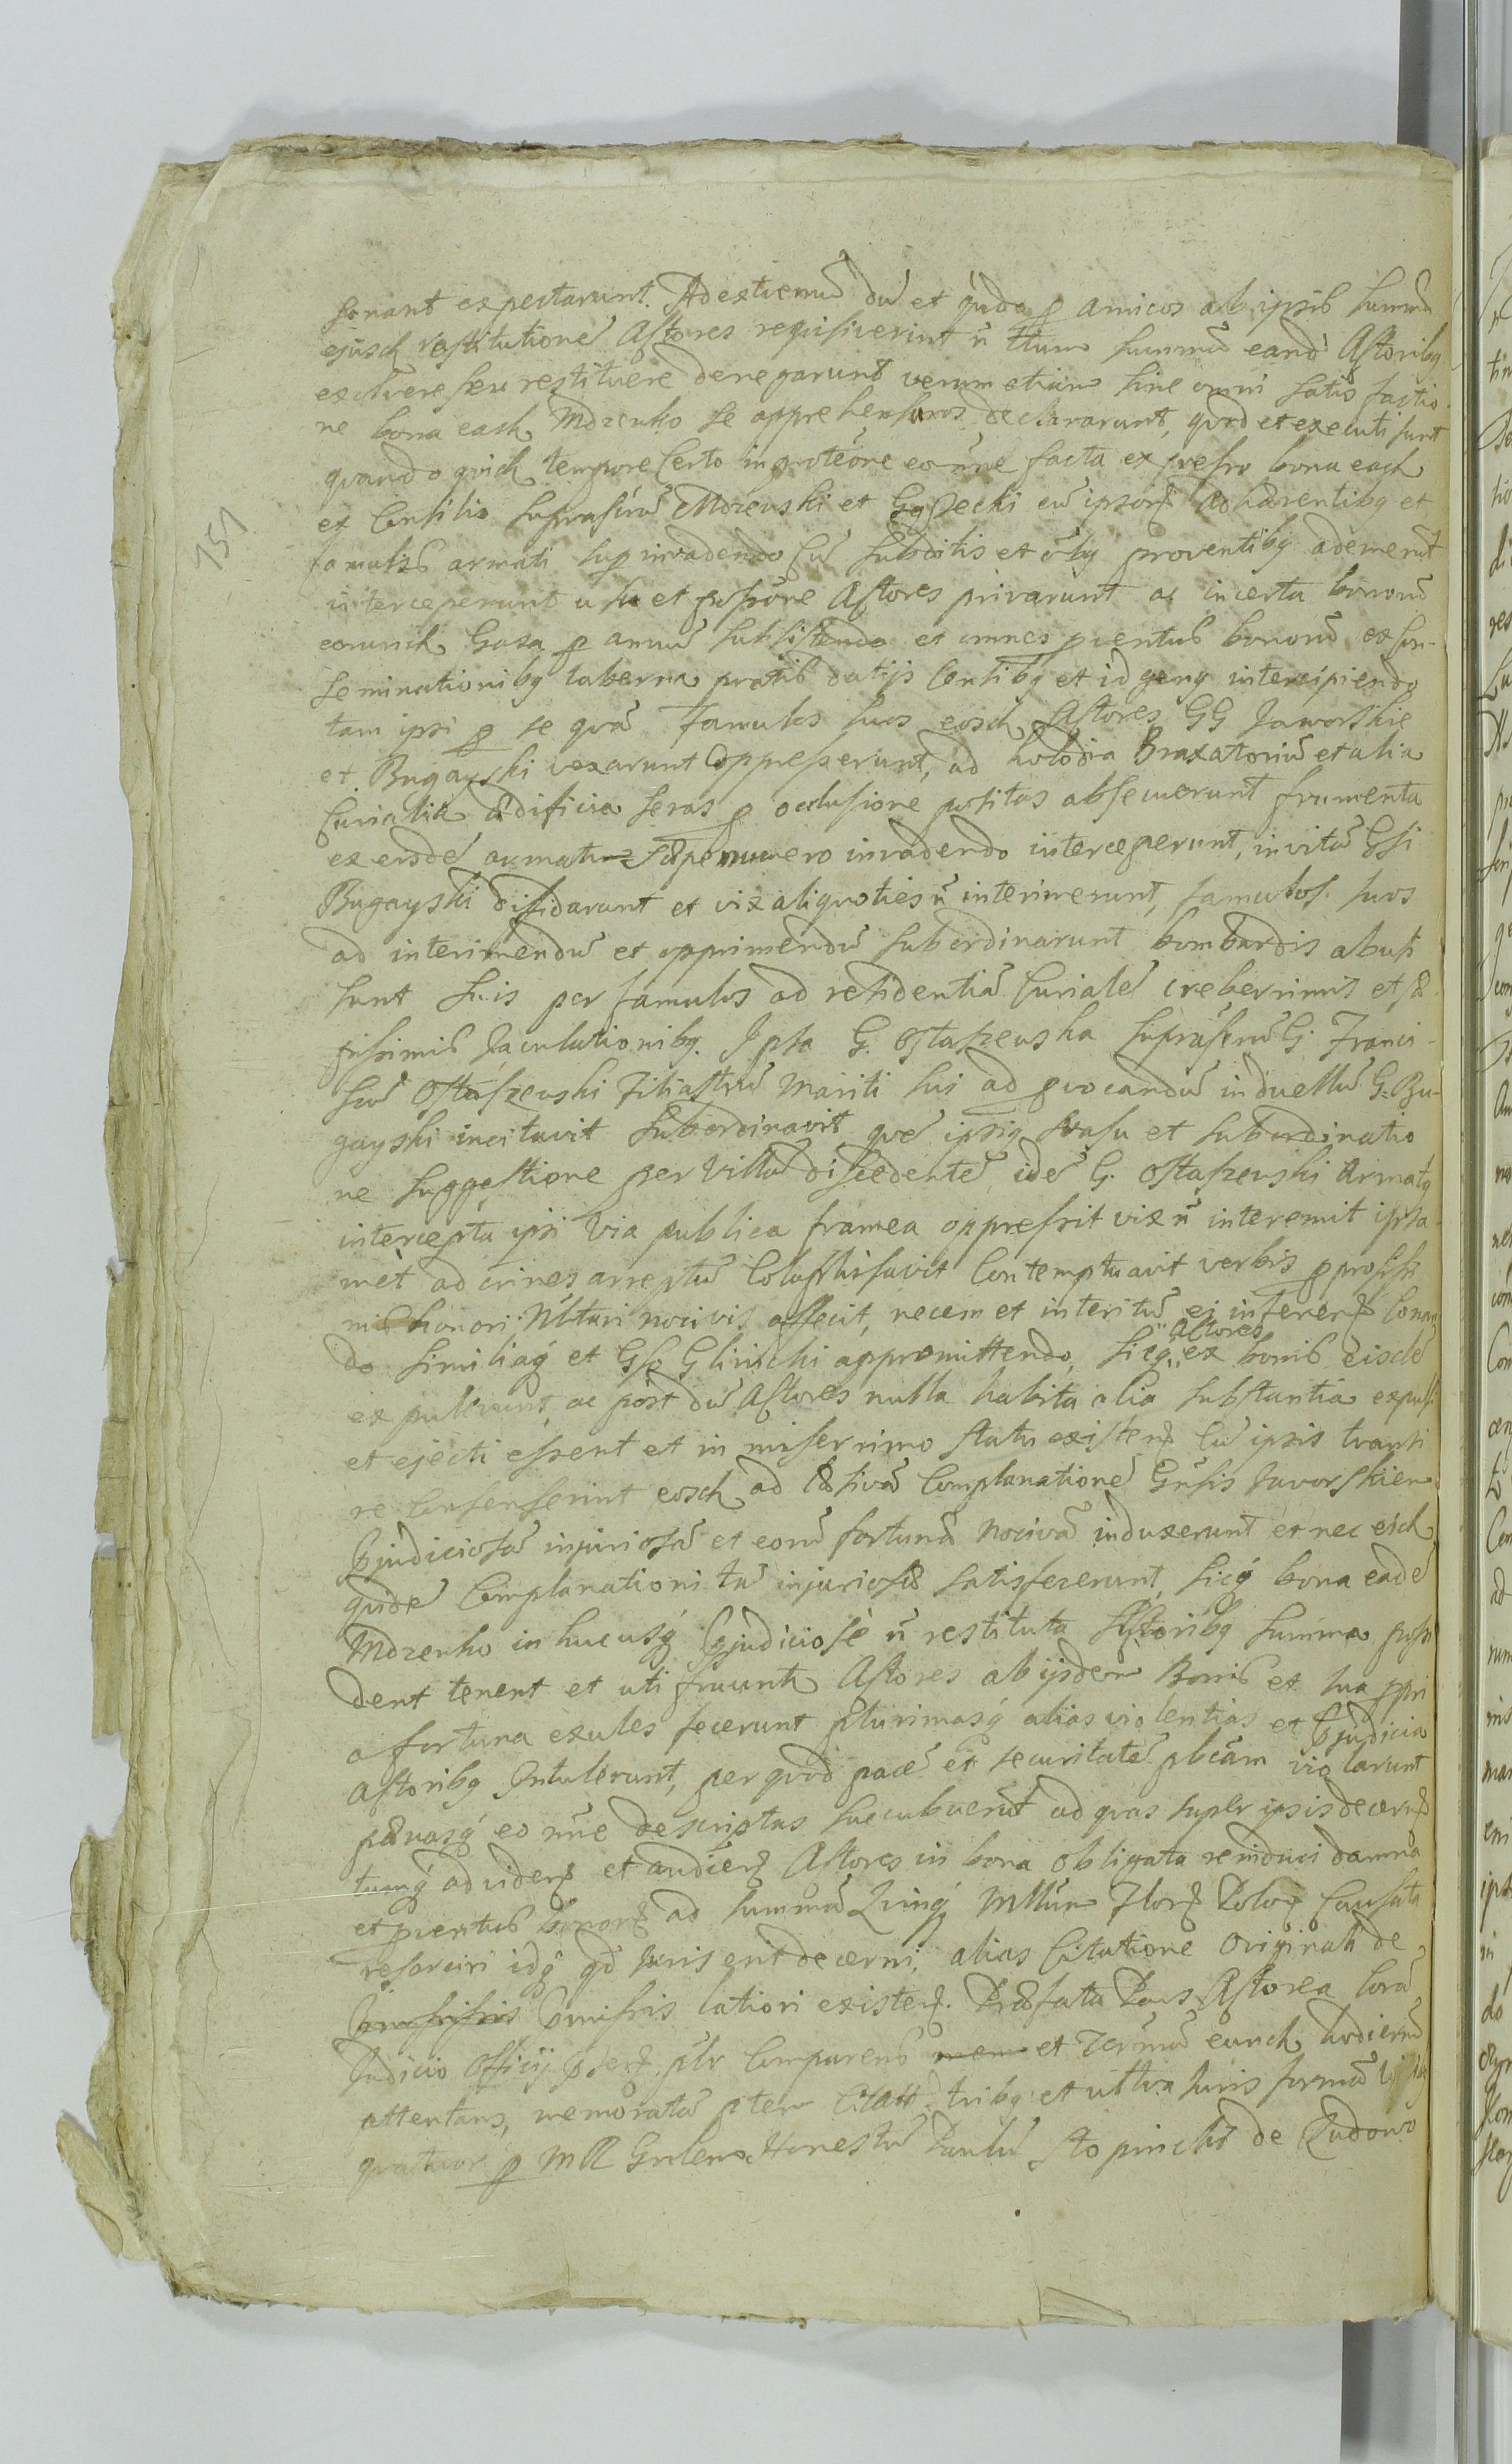 sonant expectarunt. Ad extremū dū et quida p amicos ab ipsis summæ
ejusd restitutionē Actores requisiverint ñ ttum summā eand Actoribq
exolvere seu restituere denegarunt verum etiam sine omni satisfactio
ne bona eads Mdzenko se apprehensuros declararunt, quod et executi sunt
quando quid tempore certo in protōne eo nñe facta expresso bona eads
ex Consilio suprascrū Mdzewski et cū ipsorū adhærentibq et
famulis armati sup invadendo Cū subditis et oībq proventibq ademerūt
interceperunt usu et possōne Actores privarunt ac incerta bonorū
eorund Gaza p annū subsistendo et omnes pventus bonorū ex
seminationibq taberna pratis datijs Censibq et id genq intercipiendo
tam ipsi p se quā Famulos suos eosd Actores GG Jaworskie
et Bugayski vexarunt oppresserunt, ad holodia Braxatoriū et alia
Curialia ædificia seras p occlusione positas absecuerunt frumenta
ex eisdē armatim sæpenumero invadendo interceperunt, in vitā Gsi
Bugayski disfidarunt et vix aliquoties ñ interimerunt, famulos suos
ad interimendū et opprimendū subordinarunt bombardis abusi
sunt suis per famulos ad residentiā Curialē creberrimis et sæ
pissimis Jaculationibq. Ipsa G. Ostaszewska suprascrū G. Franci-
scū Ostaszewski Filiastrū Mariti sui ad pvocandū in duellū G. Bu-
gayski incitavit subordinavit quē ipsiq svasu et subordinatio
ne suggestione per Villā discedentē, idē G. Ostaszewski armatq
intercepta ipsi via publica framea oppressit vix ñ interemit ipsa
met ad crines arreptū Colaphisavit Contemptuavit verbis pprosissi
mis honori nocivis affecit, necem et interitū ei inferend Conan
do similiaq et Gso Glinicki appromittendo, sicq "Actores" ex bonis eisdē
expulerunt, ac post dū Actores nulla habita alia substantia expulsi
et ejecti essent et in miserrimo statu existen Cū ipsis transi
re Consenserint eosd ad læsivā Complanationē Gñsis Jaworskien
pjudiciosā injuriosā et eorū fortunā nocivā induxerunt et nec eid
quidē Complanationi tā injuriosæ satisfecerunt, sicq bona eadē
Mdzenko in hucusq pjudiciose ñ restituta Actoribq summa possi
dent tenent et uti fruunt Actores ab ijsdem Bonis et sua ppri
a fortuna exules fecerunt plurimasq alias violentias et pjudicia
Actoribq Intulerunt, per quod pacē et securitatē pbcam violarunt
pænasq eo nñe descriptas succubuerūt ad quas suplr ipsis decernend
tumq ad videnđ et audienđ Actores in bona obligata reinduci damna
et pventus bonorū ad summā Quinq Mllum Flor Polor Causata
resarciri idq qđ Juris erit decerni, alias Citatione Originali de
pmissis latiori existenđ. Præfata Pars Actorea Corā
Judicio Officij pñtq plr Comparens et Termū eund hodiernū
attentans, memoratā ptem Citatt tribq et ultra Juris formā
quatuor p MR Grlem Honestū Paulū de Rudowo
151